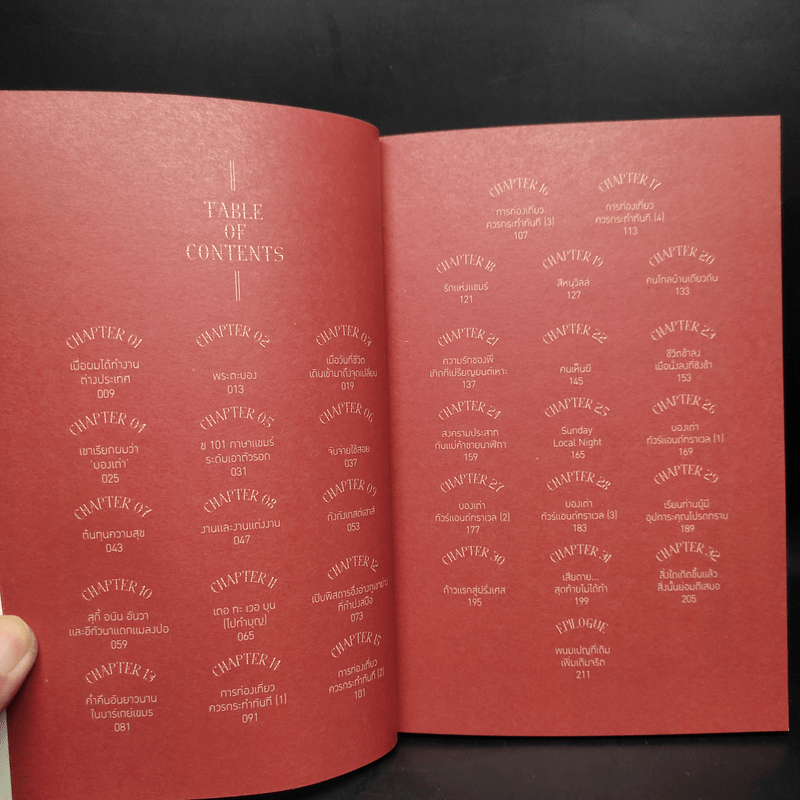 TABLE
OF
CONTENTS
CHAPTER 01
เมื่อผมได้ทำงาน
ต่างประเทศ
009
CHAPTER 02
พระตะบอง
013
CHAPTER 03
เมื่อวันที่ชีวิต
เดินเข้ามาถึงจุดเปลี่ยน
019
CHAPTER 04
เขาเรียกผมว่า
'บองเต่า'
025
CHAPTER 05
ข 101 ภาษาแขมร์
ระดับเอาตัวรอด
031
CHAPTER 06
จับจ่ายใช้สอย
037
CHAPTER 07
ต้นทุนความสุข
043
CHAPTER 08
งานและงานแต่งงาน
047
CHAPTER 09
กังกังเกสต์เฮาส์
053
CHAPTER 10
สุกี้ อนัน อันวา
และอีกัวนาแดกแมลงปอ
059
CHAPTER 11
เตอ กะ เวอ บุน
(ไปทำบุญ)
065
CHAPTER 12
ที่กำปงสปือ
073
CHAPTER 13
ค่ำคืนอันยาวนาน
ในบาร์เกย์เขมร
081
CHAPTER 14
การท่องเที่ยว
ควรกระทำทันที (1)
091
CHAPTER 15
การท่องเที่ยว
ควรกระทำทันที (2)
101
CHAPTER 16
การท่องเที่ยว
ควรกระทำทันที (3)
107
CHAPTER 17
การท่องเที่ยว
ควรกระทำทันที (4)
113
CHAPTER 18
รักแห่งแขมร์
121
CHAPTER 19
สีหนุวิลล์
127
CHAPTER 20
คนไกลบ้านเดียวกัน
133
CHAPTER 21
ความรักของพี่
เกิดที่เปรียญยนต์เหาะ
137
CHAPTER 22
คนเห็นผี
145
CHAPTER 23
ชีวิตช้าลง
เมื่อนั่งลงที่ชิงช้า
153
CHAPTER 24
สงครามประสาท
กับแม่ค้าขายนาฬิกา
159
CHAPTER 25
Sunday
Local Night
165
CHAPTER 26
บองเต่า
ทัวร์แอนด์ทราเวล (1)
169
CHAPTER 27
บองเต่า
ทัวร์แอนด์ทราเวล (2)
177
CHAPTER 28
บองเต่า
ทัวร์แอนด์ทราเวล (3)
183
CHAPTER 29
เรียนท่านผู้มี
อุปการะคุณโปรดทราบ
189
CHAPTER 30
ก้าวแรกสู่ฝรั่งเศส
195
CHAPTER 31
เสียดาย...
สุดท้ายไม่ได้ทำ
199
CHAPTER 32
สิ่งใดเกิดขึ้นแล้ว
สิ่งนั้นย่อมดีเสมอ
205
EPILOGUE
พนมเปญที่เดิม
เพิ่มเติมจริต
211